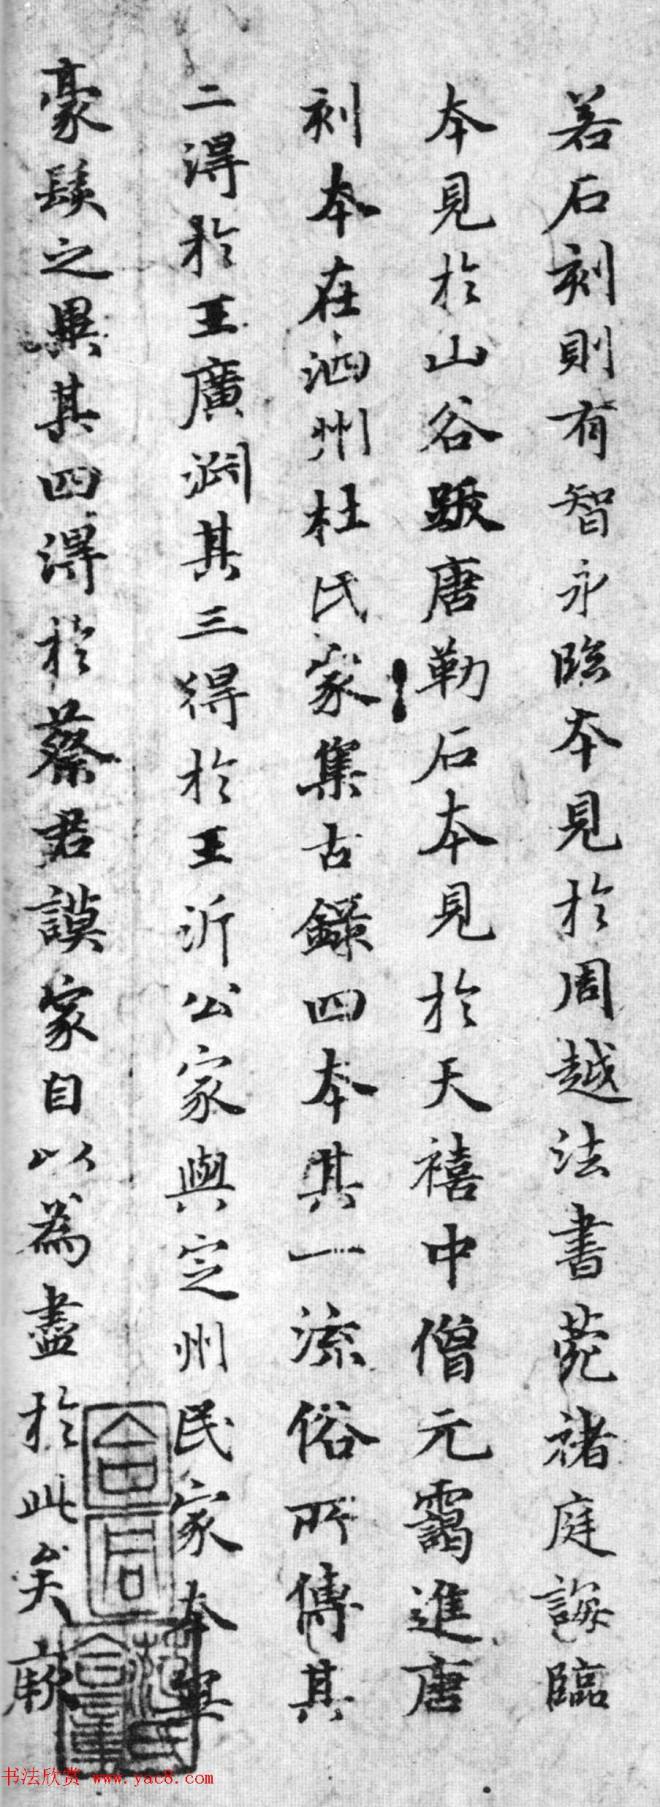 若石刻則有智永臨本見於周越法書苑禇庭誨臨
本見於山谷跋唐勒石本見於天禧中僧元靄進唐
刻本在泗州杜氏家集古錄四本其一流俗所傳其
二得於王廣淵其三得於王沂公家與定州民家本異
豪髮之異其四得於蔡君謨家自以為盡於此矣厥
书法欣赏 www.yac8.com